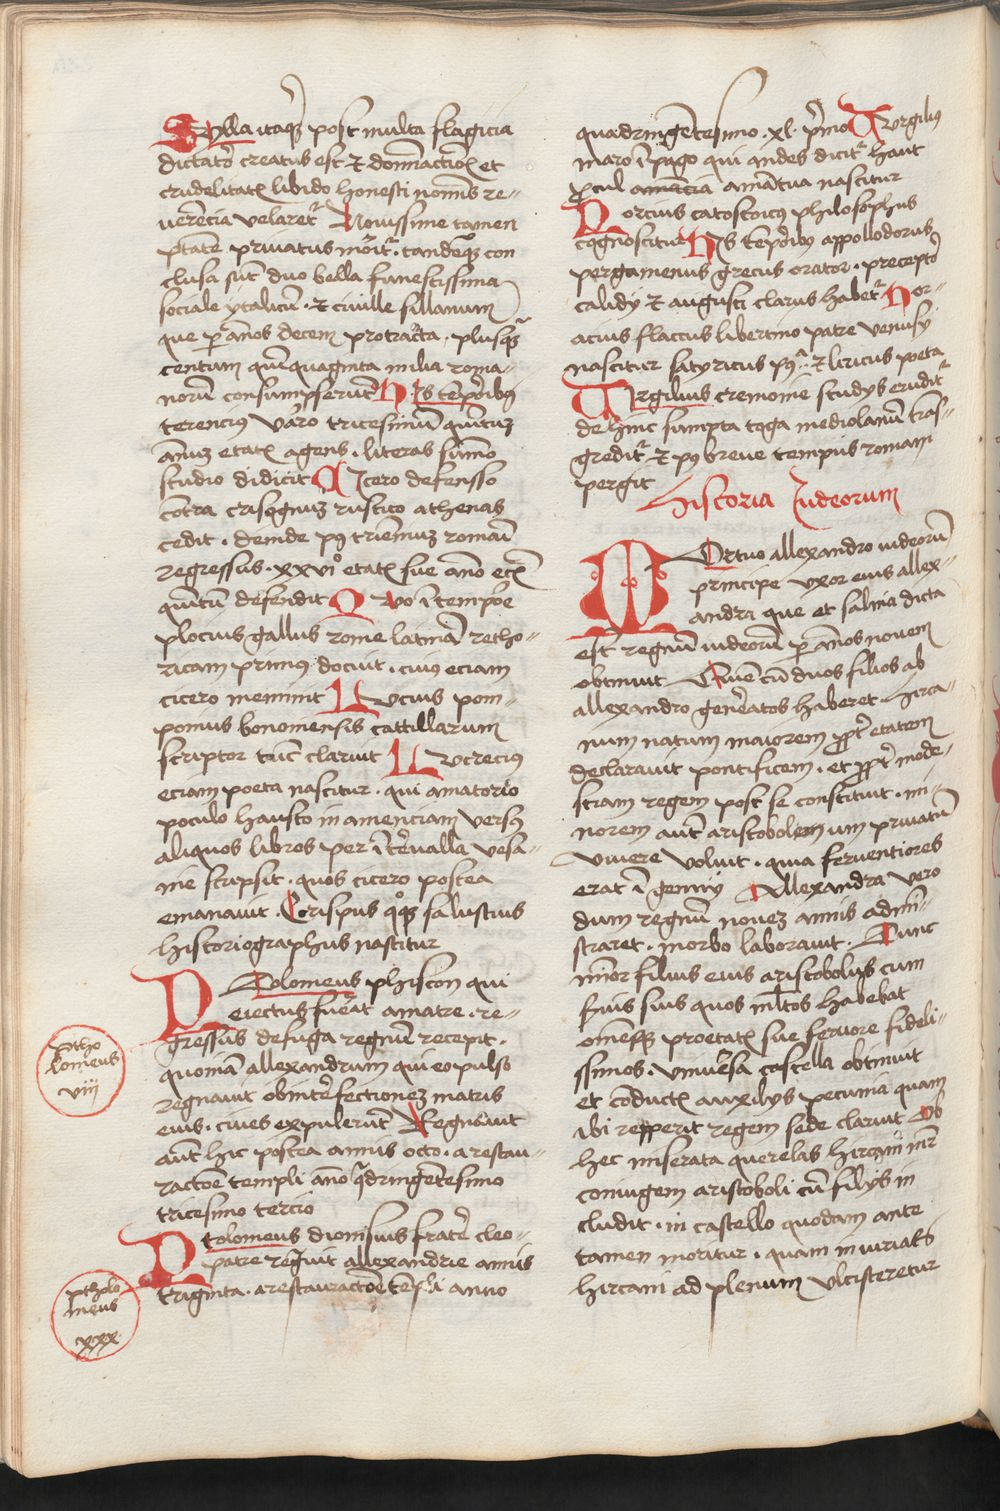 Sylla itaqꝫ post multa flagicia
dictator creatus est ⁊ domnactiōe et
crudelitatꝭ libido honesti nominis re-
uerēcia velaretᷣ Nouissime tamen
ptātē priuatus moritᷣ. tandēqꝫ con
clusa sūt duo bella funestissima
sociale ytalicū. ⁊ ciuille sillanum
que ꝑ ānos decem protracta. plusqꝫ
centum quīquaginta milia roma-
norū consumpserūt His tempeꝛibꝰ
terencius varo tricesimū quītuꝫ
ānuꝫ etatꝭ agens. literas sūmo
studio didicit Cicero defensso
cōtra crisognuꝫ rustico athenas
cedit. deinde pꝰ trieniuꝫ romā
regressus. xxviᵒ etatꝭ sue āno
quītū defendit Quo ī tempore
plocius gallus rome latinā retho-
ricam primus docuit. cuiꝰ eciam
cicero meminit Lucius pom-
ponius bonomensis cattillarum
scriptor tūc claruit Lucrecius
eciam poeta nascitur. qui amatorio
poculo hausto in amenciam versꝰ
aliquos libros per ītervalla vesa-
nie scripsit. quos cicero postea
emanauit. Crispus qͦqꝫ salustius
historiographus nascitur
Ptolomeus phiscon qui
eiectus fuerat amatre. re-
gressus defuga regnū recepit.
quoniā allexandrum qui eo pulso
regnauit obinterfectionez matris
eius. ciues expulerūt Regnauit
aūt hic postea annis octo. a restau-
ractōe templi āno qͣdringētesimo
tricesimo tercio
Ptolomeus dionisius frater cleo-
patre regnuit allexandrie annis
triginta. a restauractōe tēpli anno
ptho
lomeus
viii
ptholo
meus
xxx
quadringētesimo. xl. pͥmo Virgilius
maro ī pago qui andes dicitᷣ haut
ꝓcul amancia amātua nascitur
Porcius catostoicꝰ philosophus
cognoscitur His tēporibꝰ appollodorus
pergamenus grecus orator. preceptor
calidy ⁊ augusti clarus habetᷣ Hor-
acius flaccus libertino patre venusy
nascitur satyricus pꝰ ⁊ liricus poeta
Virgilius cremonie studys eruditᷣ
de hinc sumpta toga mediolanū trās-
greditᷣ ⁊ pꝰ breue tempus romam
pergit
Historia Iudeorum
Mortuo allexandro iudeorū
principe vxor eius allex-
andra que et salina dicta
est regnū iudeorū ꝑ ānos nouem
obtinuit Que cū duos filios ab
allexandro generatos haberet hirca-
num natum maiorem ꝓpter etatem
declarauit pontificem. et ꝓpter mode-
stiam regem post se constituit. mi-
norem autē aristobolem um priuatū
viuere voluit. quia feruentiores
erat ī geniy Allexandra vero
dum regnū nouez annis admi-
straret. morbo laborauit. Tunc
minor filius eius aristobolus cum
suis quos mltos habebat
omēsqꝫ proetatꝭ sue feruore fideli-
ssimos. vniuersa castella obtinuit
et cōductꝭ auxilys pecunia quam
ibi repperit regem sede claruit Ob
hec miserata querelas hircani mr̄
coniugem aristoboli cū filys in
cludit. in castello quodam ante
tamen moritur. quam iniurias
hircani ad plenum vlcisteretur